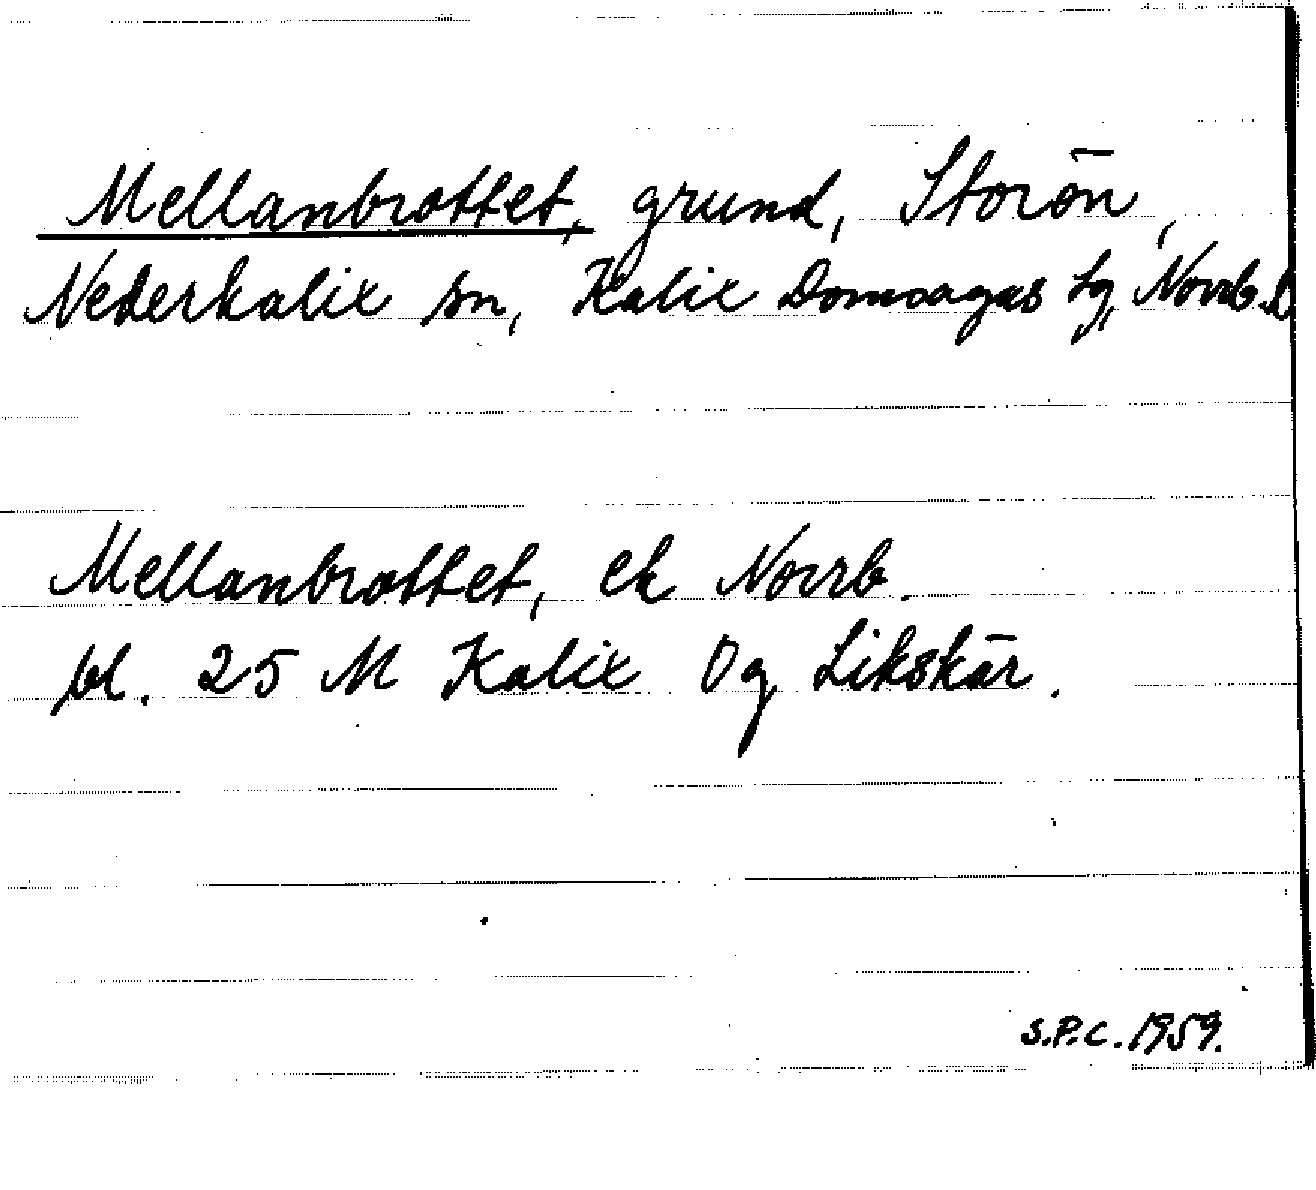 Mellanbrottet, grund, Storön,
Nederkalix sn, Kalix Domsagas tg, Norrb. L
Mellanbrottet, ek Norrb.
bl. 25 M Kalix Og Likskär.
S.P.C. 1959.